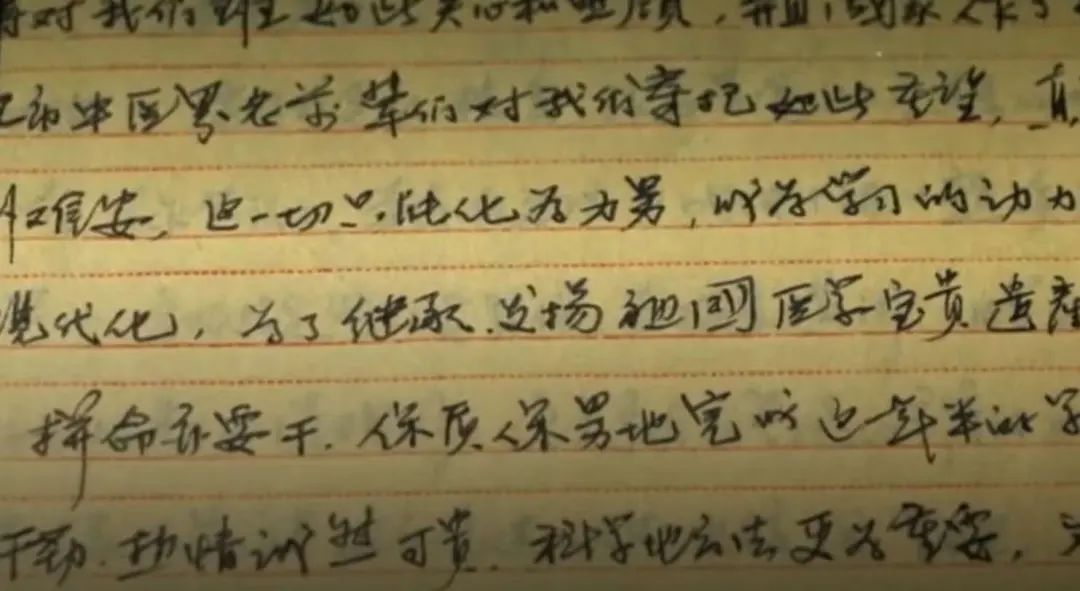 对我们班如此关心和照顾，并且，国家
中医界老前辈们对我们寄托如此重望，真
难安，这一切只能化为力量，成为学习的动力
现代化，为了继承、发扬祖国医学宝贵遗产
拼命亦要干，保质保量地完成这年半的学
干劲、热情诚然可贵，科学地方法更为重要，